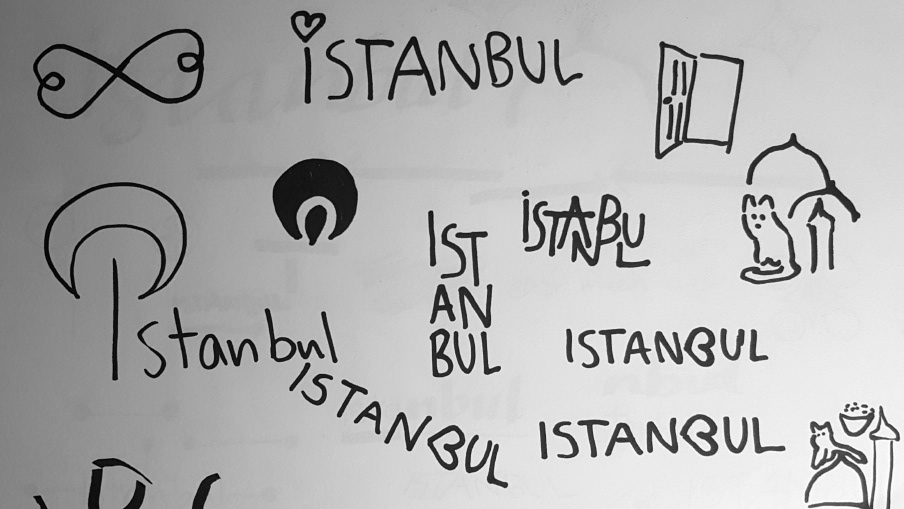 iSTANBUL
iSTANBUL
IST
AN
BUL
Istanbul
ISTANBUL
ISTANBUL
ISTANBUL